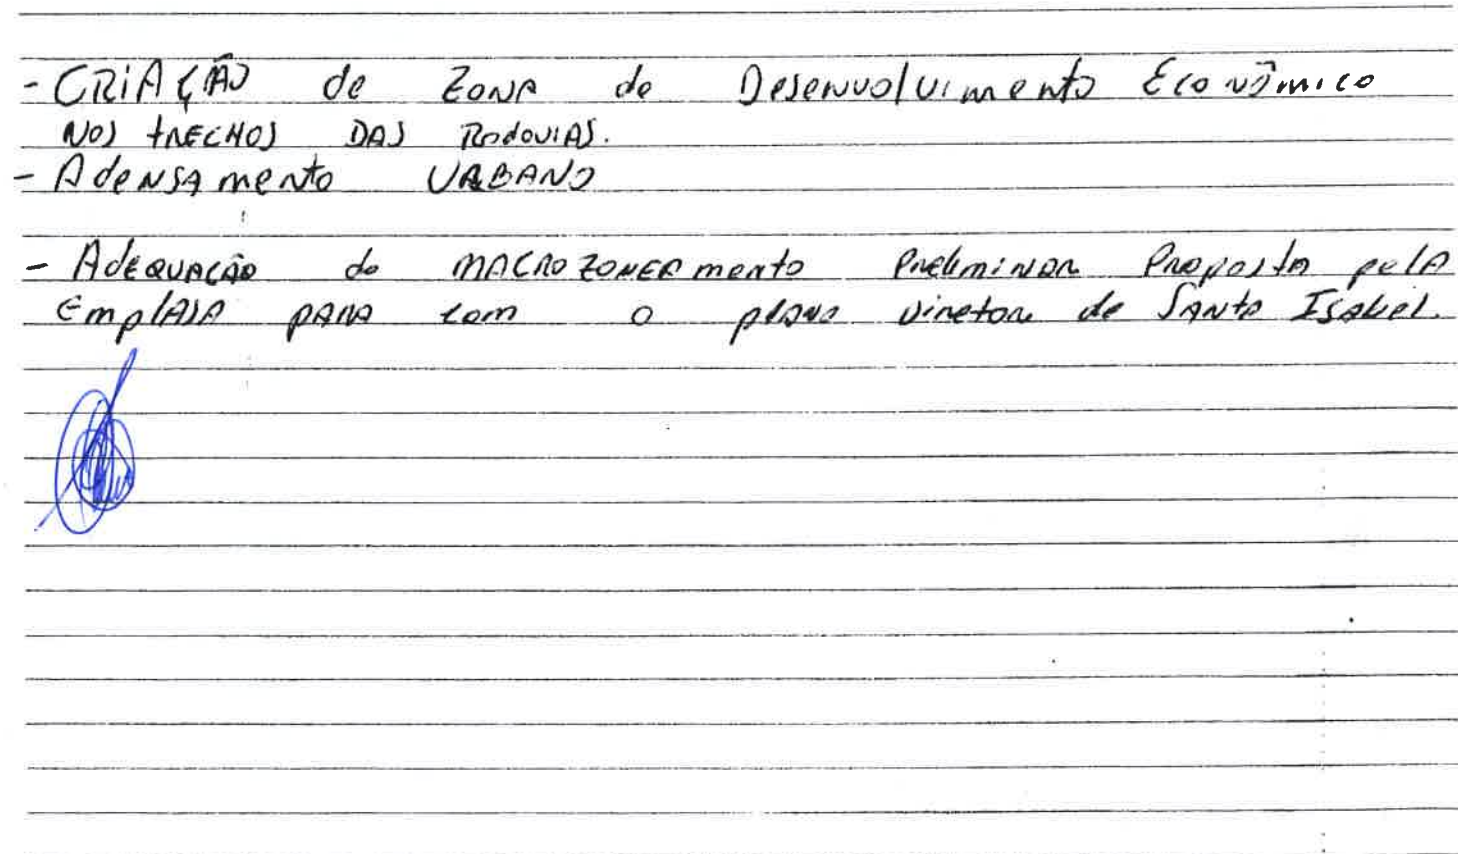 - CRIAÇÃO de ZONA de Desenvolvimento Econômico
NOS TRECHOS DAS RODOVIAS.
- Adensamento URBANO
- Adequação do MACROZONEAmento Preliminar Proposta pela
EmplASA PARA com o plano Diretor de SANTA Isabel.